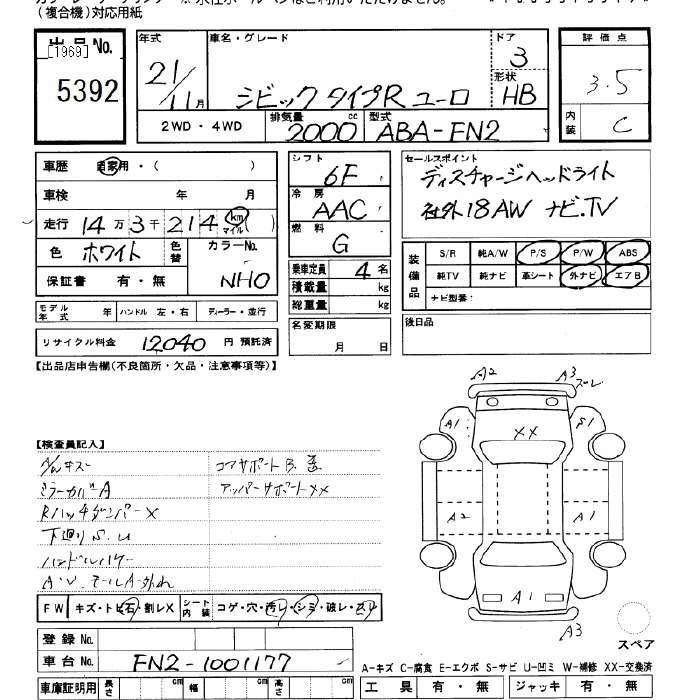 (複合機)対応用紙
出品No.
[1969]
5392
年式
21/11月
車名・グレード
シビック タイプR ユーロ
ドア
3
形状
HB
2WD・4WD
排気量
2000cc
型式
ABA-FN2
評価点
3.5
内装
C
車歴 自家用・( )
車検 年 月
走行 14万3千214 km マイル ( )
色 ホワイト 色替 カラーNo. NHO
保証書 有・無
モデル年式 年 ハンドル 左・右 ディーラー・並行
リサイクル料金 12,040 円 預託済
シフト 6F
冷房 AAC
燃料 G
乗車定員 4名
積載量 kg
総重量 kg
名変期限
月 日
セールスポイント
ディスチャージヘッドライト
社外18AW ナビ.TV
装備品 S/R 純A/W P/S P/W ABS
純TV 純ナビ 革シート 外ナビ エアB
ナビ型番:
後日品
【出品店申告欄(不良箇所・欠品・注意事項等)】
【検査員記入】
A/Wキズ コアサポートB.歪
ミラーカバーA アッパーサポートXX
RハッチダンパーX
下廻りS.U
ハンドルハゲ
FW キズ・トビ石・割レX シート内装 コゲ・穴・汚レ・シミ・破レ・スレ
登録No.
車台No. FN2-1001177
車庫証明用 長さ cm 幅 cm 高さ cm
A2 A3 ズレ
A1 XX S1
A2 A1
A1
A3
スペア
A-キズ C-腐食 E-エクボ S-サビ U-凹ミ W-補修 XX-交換済
工具 有・無 ジャッキ 有・無